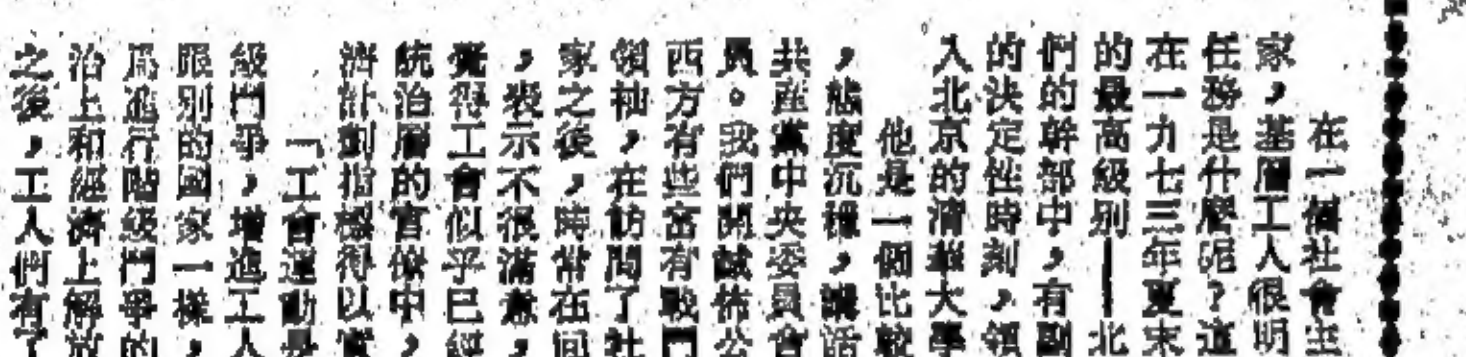 在一個社會主
家，基層工人很明
任務是什麼呢？這
在一九七三年夏末
的最高級别——北
們的幹部中，有副
的決定性時刻，領
入北京的清華大學
他是一個比較
，態度沉穩，講話
共產黨中央委員會
員。我們開誠佈公
西方有些富有戰鬥
領袖，在訪問了社
家之後，時常在
，表示不很滿意，
覺得工會似乎已經
統治層的官僚中，
濟計劃指標得以
「工會運動是
級鬥爭，增進工人
限别的國家一樣，
爲進行階級鬥爭的
治上和經濟上解放
之後，工人們有了